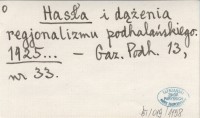 Hasła i dążenia
regjonalizmu podhalańskiego.
1925... — Gaz. Podh. 13,
nr 33.